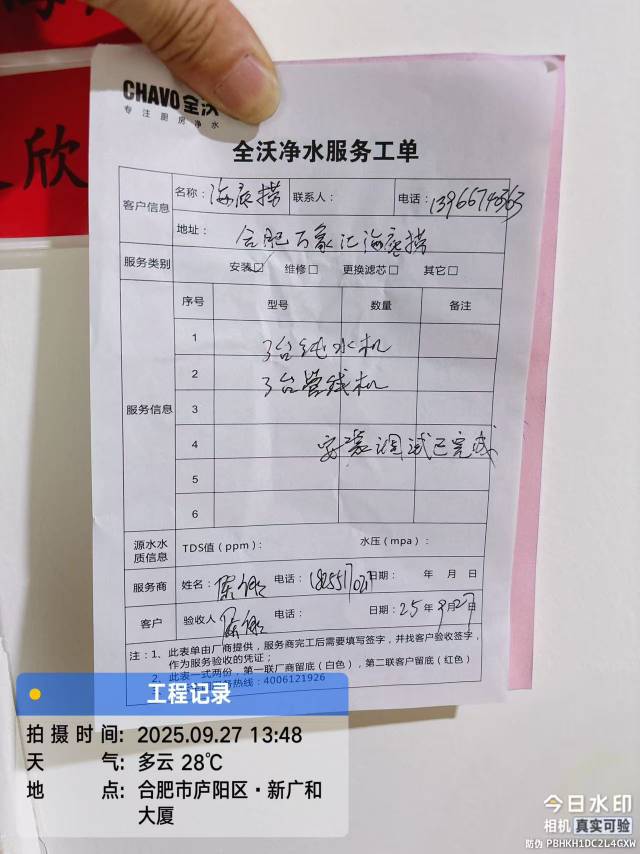 欣
CHAVO全沃
专注厨房净水
全沃净水服务工单
客户信息 名称：海底捞 联系人： 电话：
地址：合肥万象汇海底捞
服务类别 安装☑ 维修□ 更换滤芯□ 其它□
服务信息 序号 型号 数量 备注
1 3台纯水机
2 3台管线机
3
4 安装调试已完成
5
6
源水水质信息 TDS值（ppm）： 水压（mpa）：
服务商 姓名： 电话： 日期： 年 月 日
客户 验收人 电话： 日期：25年9月27日
注：1、此表单由厂商提供，服务商完工后需要填写签字，并找客户验收签字，
作为服务验收的凭证；
2、此表一式两份，第一联厂商留底（白色），第二联客户留底（红色）
务热线：4006121926
工程记录
拍摄时间：2025.09.27 13:48
天气：多云 28℃
地点：合肥市庐阳区·新广和
大厦
今日水印
相机 真实可验
防伪 PBHKH1DC2L4GXW